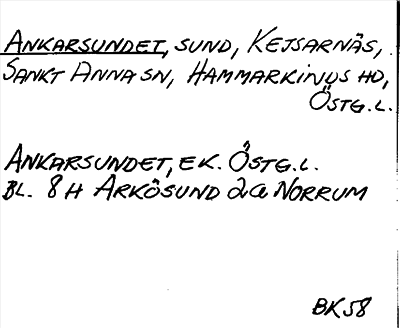 ANKARSUNDET, SUND, KEJSARNÄS,
SANKT ANNA SN, HAMMARKINDS HD,
ÖSTG.L.
ANKARSUNDET, EK. ÖSTG.L.
BL. 8H ARKÖSUND 2a NORRUM
BK58